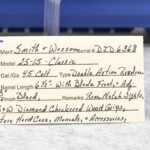 Mfr. Smith & Wesson Serial # DZD6868
Model 25-15 - Classic
Cal/Ga 45 Colt Type Double Action Revolver
Barrel Length 6½" With Blade Front, & Adj.
Finish Blued, Remarks Rem. Notch Sights,
S&W Diamond Checkered Wood Grips,
Hard Case, Manuals, & Accessories,